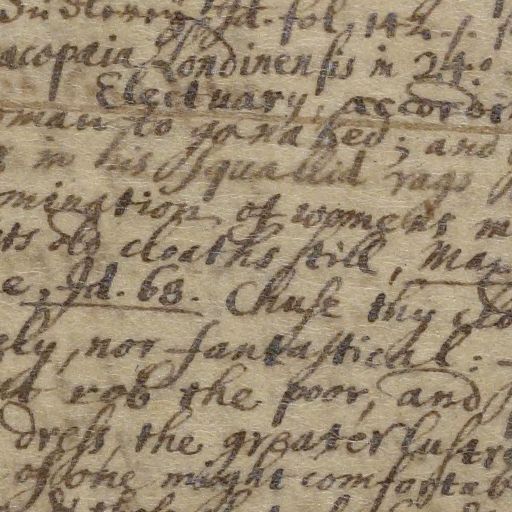 Id. fol. 142.
acopaia Londinensis in 24.o
Electuary, accordi
oman to go naked; and
in his squallid rags
mination of womens m
ts old cloaths still, May
e, Id. 63. Chuse thy clo
ely, nor fantastickl:
rob the poor, and
dress the greater lustr
of one might comfortab